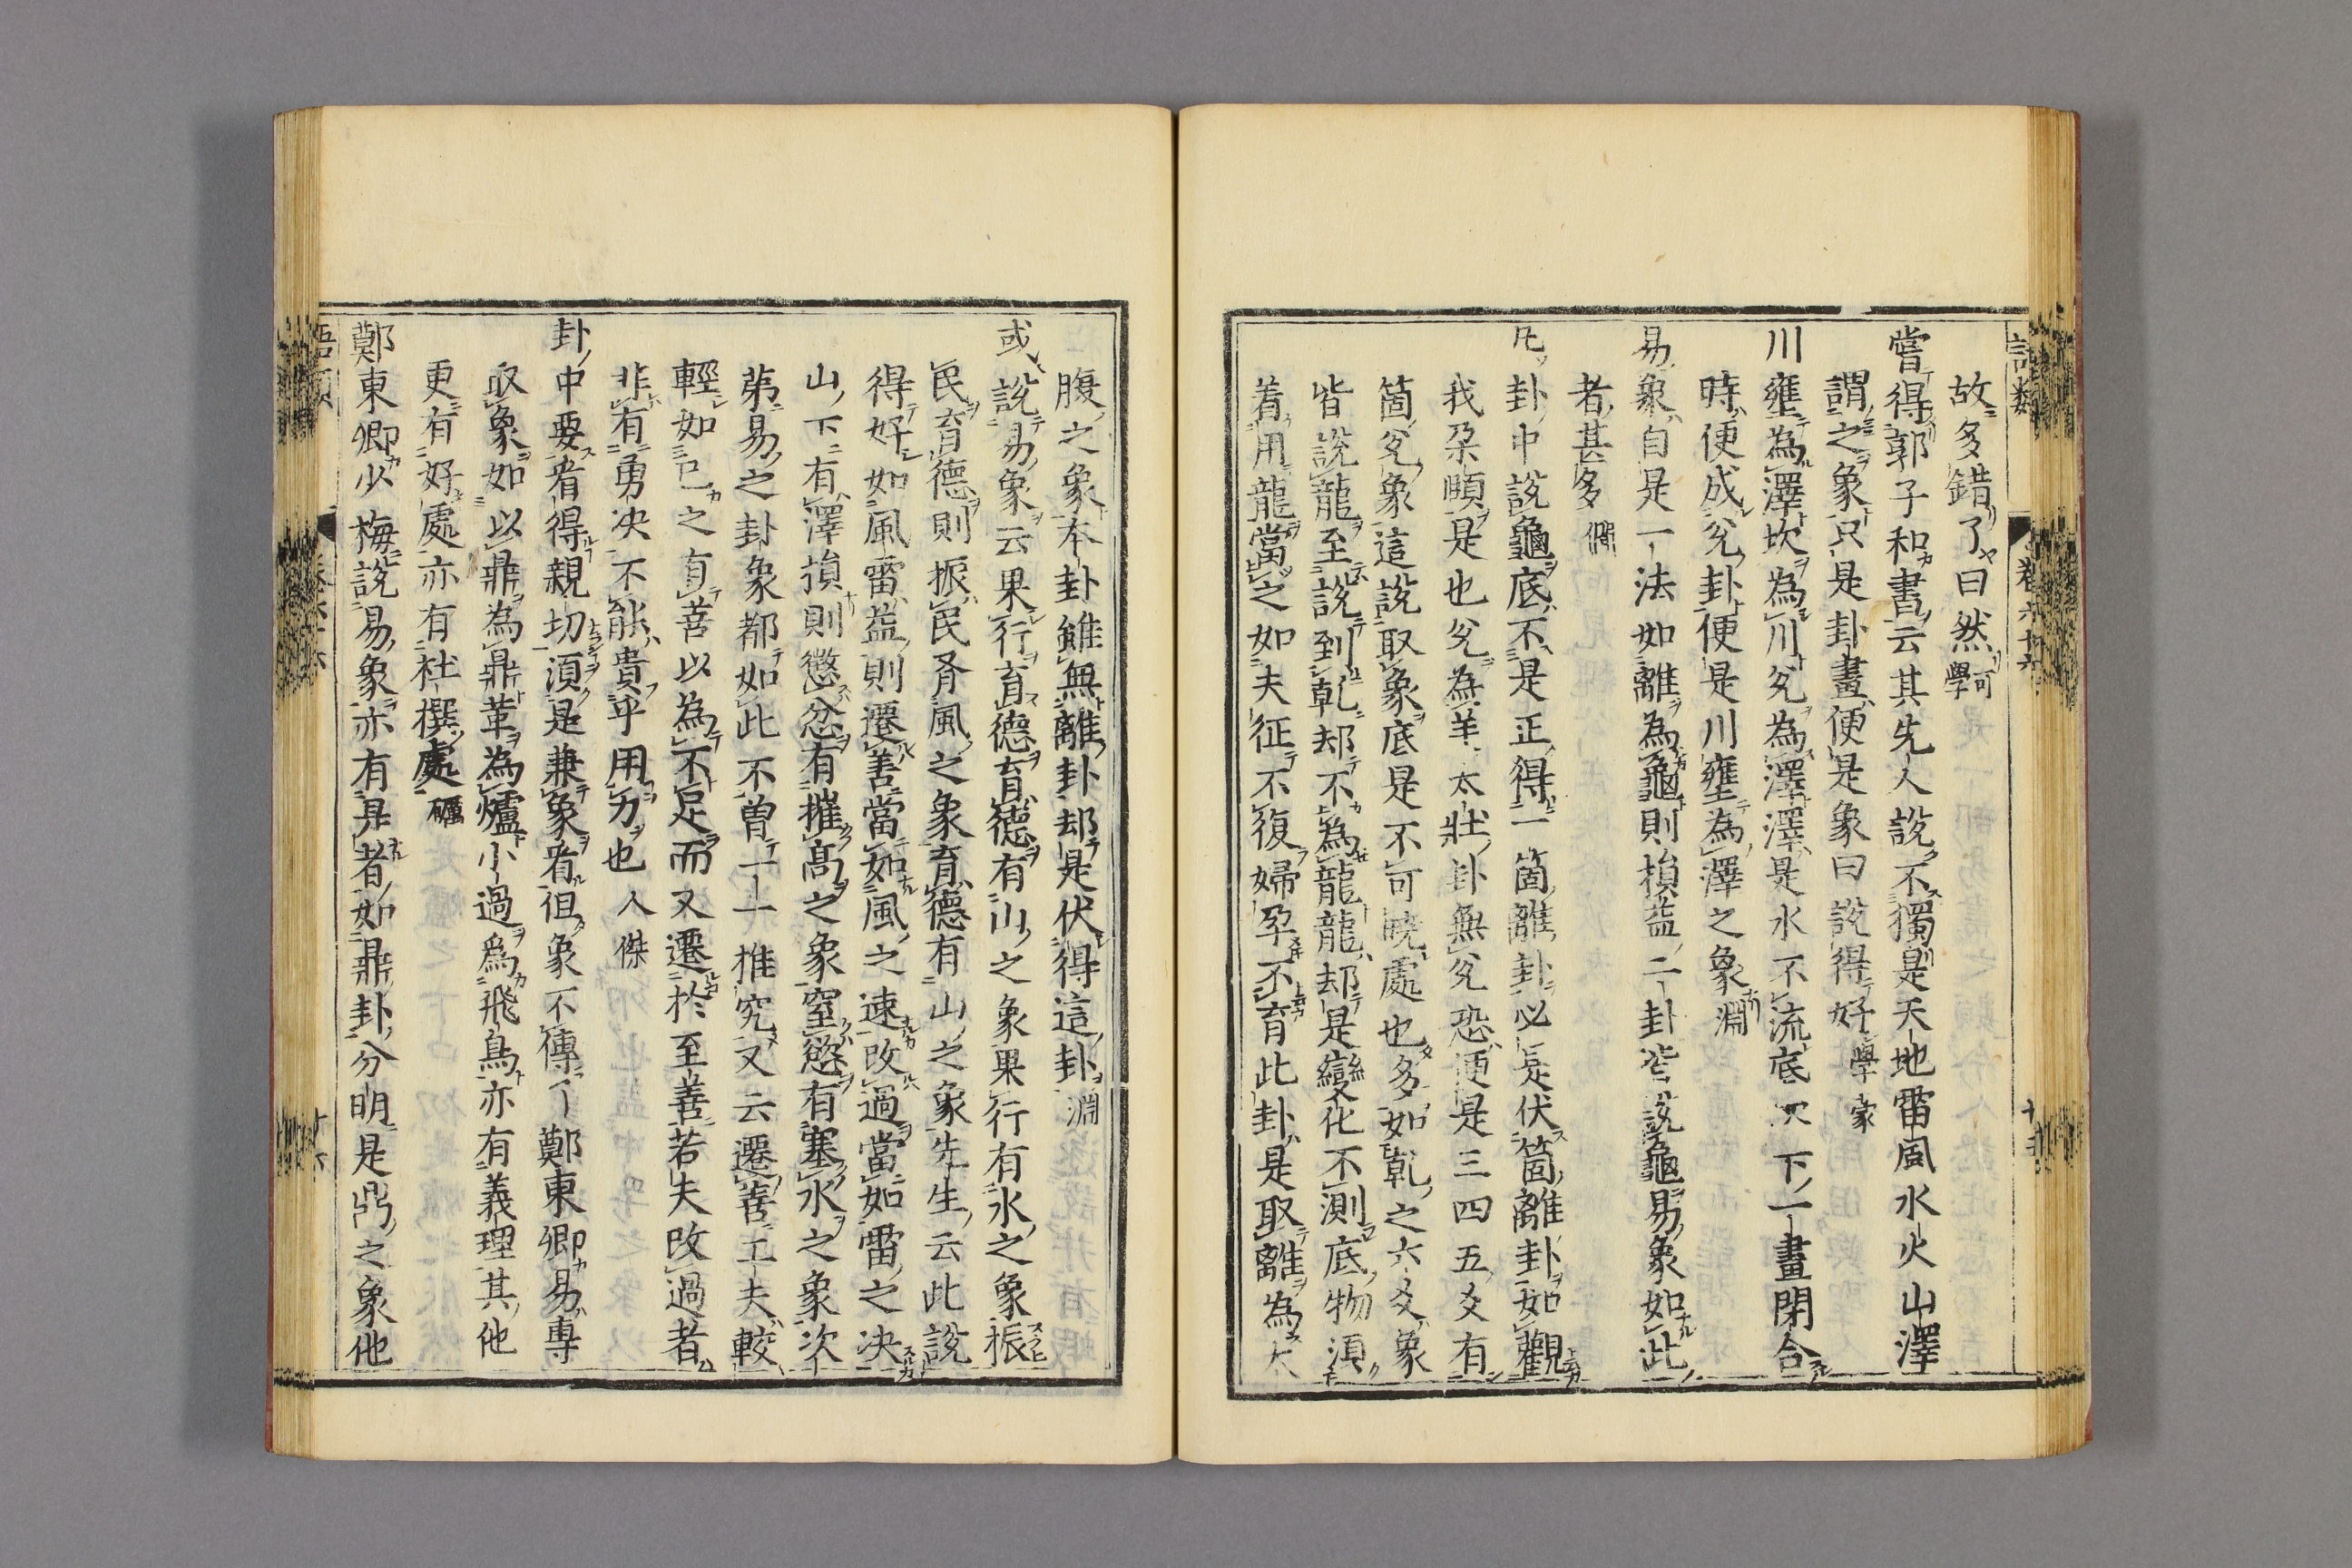 故多錯了曰然可學
嘗得郭子和書云其先人說不獨是天地雷風水火山澤
謂之象只是卦畫便是象曰說得好學蒙
川壅為澤坎為川兊為澤澤是水不流底坎下一畫閉合
時便成兊卦便是川壅為澤之象淵
易象自是一法如離為龜則損益二卦皆說龜易象如此
者甚多僩
凡卦中說龜底不是正得一箇離卦必是伏箇離卦如觀
我朶頤是也兊為羊大壯卦無兊恐便是三四五爻有
箇兊象這說取象底是不可曉處也多如乾之六爻象
皆說龍至說到乾却不為龍龍却是變化不測底物須
着用龍當之如夫征不復婦孕不育此卦是取離為大
腹之象本卦雖無離卦却是伏得這卦淵
或說易象云果行育德育德有山之象果行有水之象振
民育德則振民有風之象育德有山之象先生云此說
得好如風雷益則遷善當如風之速改過當如雷之决
山下有澤損則懲忿有摧高之象窒慾有塞水之象次
第易之卦象都如此不曾一一推究又云遷善工夫較
輕如己之有善以為不足而又遷於至善若夫改過者
非有勇决不能貴乎用力也人傑
卦中要看得親切須是兼象看但象不傳了鄭東卿易專
取象如以鼎為鼎革為爐小過為飛鳥亦有義理其他
更有好處亦有杜撰處礪
鄭東卿少梅說易象亦有是者如鼎卦分明是鼎之象他
語類
卷六十六
十五